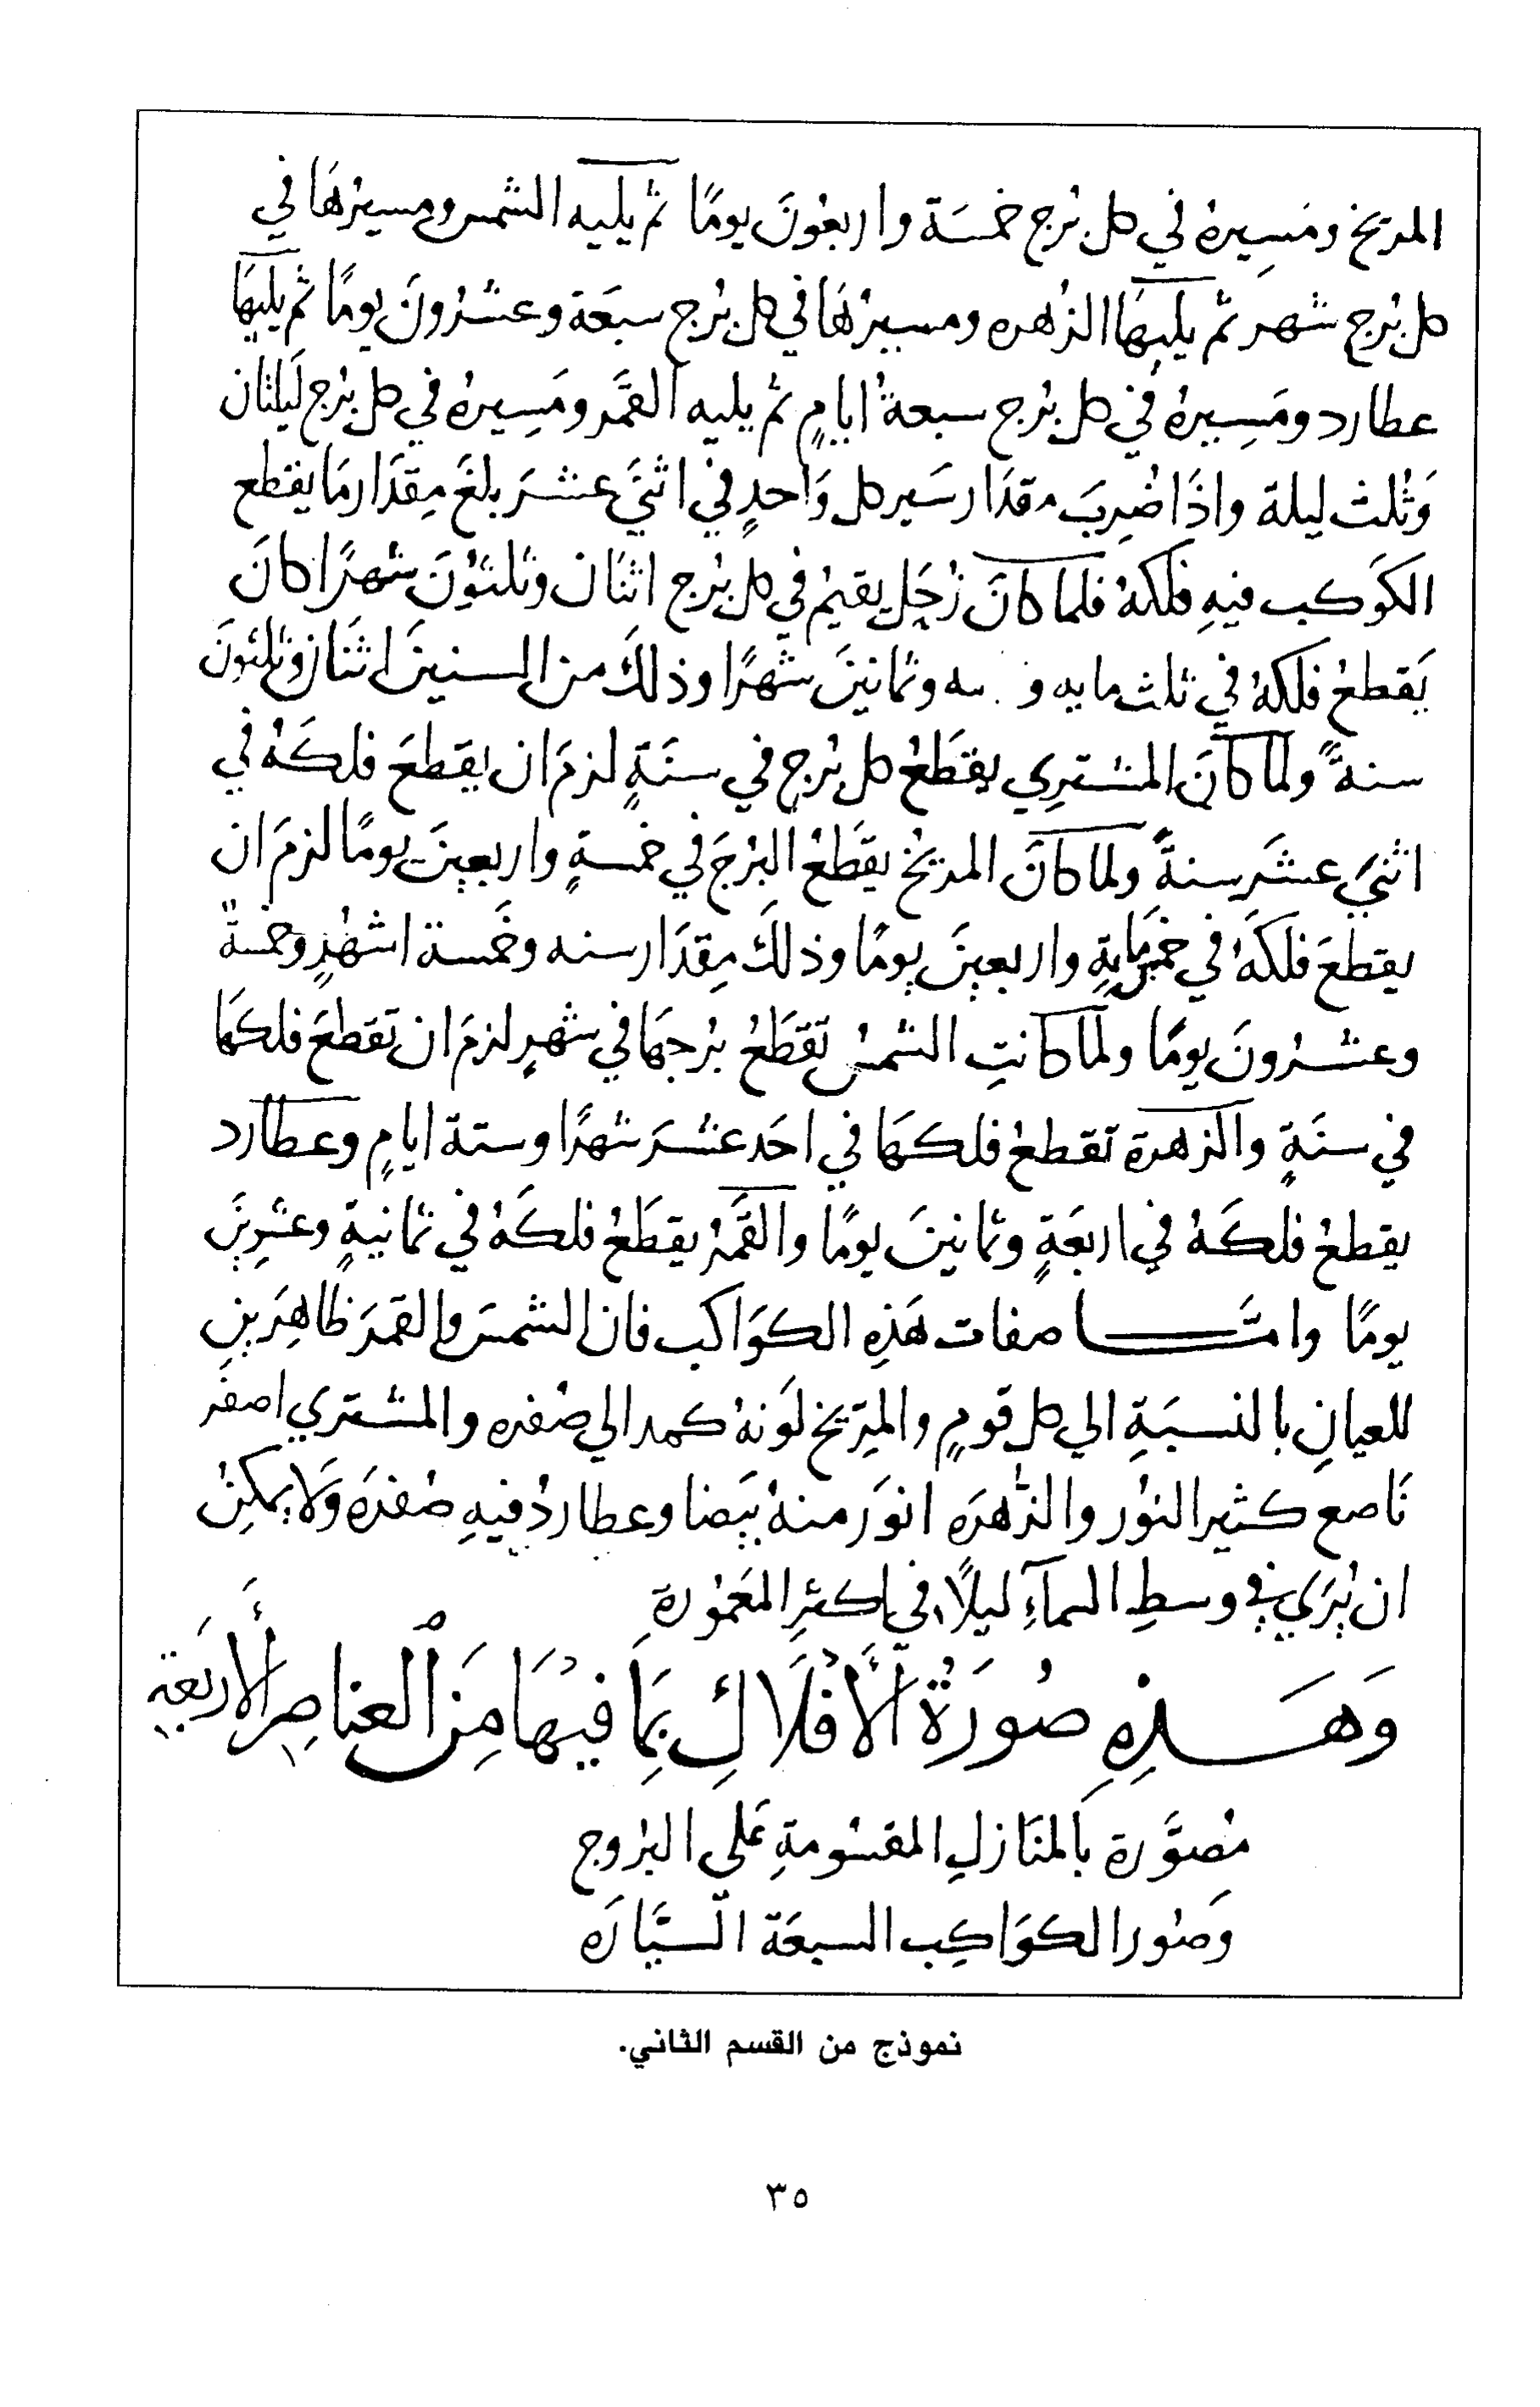 المريخ ومَسِيرهُ في كل بُرج خمسَة واربعُونَ يومًا ثم يليه الشمس ومسيرُهَا في
كل بُرج شهر ثم يليهَا الزُهره ومسيرُهَا في كل بُرج سبعَة وعشرُونَ يومًا ثم يليهَا
عطارد ومَسِيرهُ في كل بُرج سبعةُ ايامٍ ثم يليه القمَر ومَسِيرهُ في كل بُرج ليلتان
وَثُلث ليلة واذَا ضُرِبَ مقدَار سَير كل وَاحدٍ في اثنَيْ عشرَ بلغَ مِقدَار مَا يقطع
الكَوكب فيهِ فلكهُ فلما كانَ زُحَل يقيمُ في كل بُرج اثنَان وثلثوُنَ شهرًا كانَ
يَقطعُ فلكهُ في ثلث مايه و ـه وثمانينَ شهرًا وذلكَ من السنينَ اثنَان وثلثونَ
سنةً ولما كانَ المشترِي يقطَعُ كل بُرجٍ في سنَةٍ لزمَ ان يقطعَ فلكَهُ في
اثنَيْ عشَر سنةً ولما كانَ المريخ يقطَعُ البُرجَ في خمسةٍ واربعينَ يومًا لزمَ ان
يقطعَ فلكَهُ في خمسمَايةٍ واربعينَ يومًا وذلكَ مِقدَار سنه وخَمسة اشهُرٍ وخمسةً
وعشرُونَ يومًا ولما كانتِ الشمسُ تقطَعُ بُرجهَا في شهرٍ لزمَ ان تقطعَ فلكهَا
في سنَةٍ والزهرَة تقطعُ فلكهَا في احَد عشرَ شهرًا وستة ايامٍ وعطارد
يقطعُ فلكَهُ في اربعَةٍ وثمانينَ يومًا والقمَرُ يقطَعُ فلكَهُ في ثمانيةٍ وعشرِينَ
يومًا وامَّـا صفات هَذِهِ الكوَاكب فان الشمسَ والقمَرَ ظاهِرَينِ
للعيانِ بالنسبَةِ الي كل قومٍ والمِرّيخ لَونهُ كمد الي صُفره والمشتري اصفَر
نَاصع كثير النوُر والزُّهرَه انوَر منهُ بيَضا وعطاردُ فيهِ صُفرَه وَلا يمكِنُ
ان يُرَي في وسطِ السمآءِ ليلًا في اكثرِ المعَموُرة
وَهَـذِهِ صُورَةُ الأَفْلَاكِ بِمَا فيْهَا مِنَ ٱلعناصِر الأَربَعَةِ
مُصوَّرة بالمنَازلِ المقسُومةِ عَلى البُروج
وَصُور الكوَاكِب السبعَة السَّيَّارَه
نموذج من القسم الثاني.
٣٥